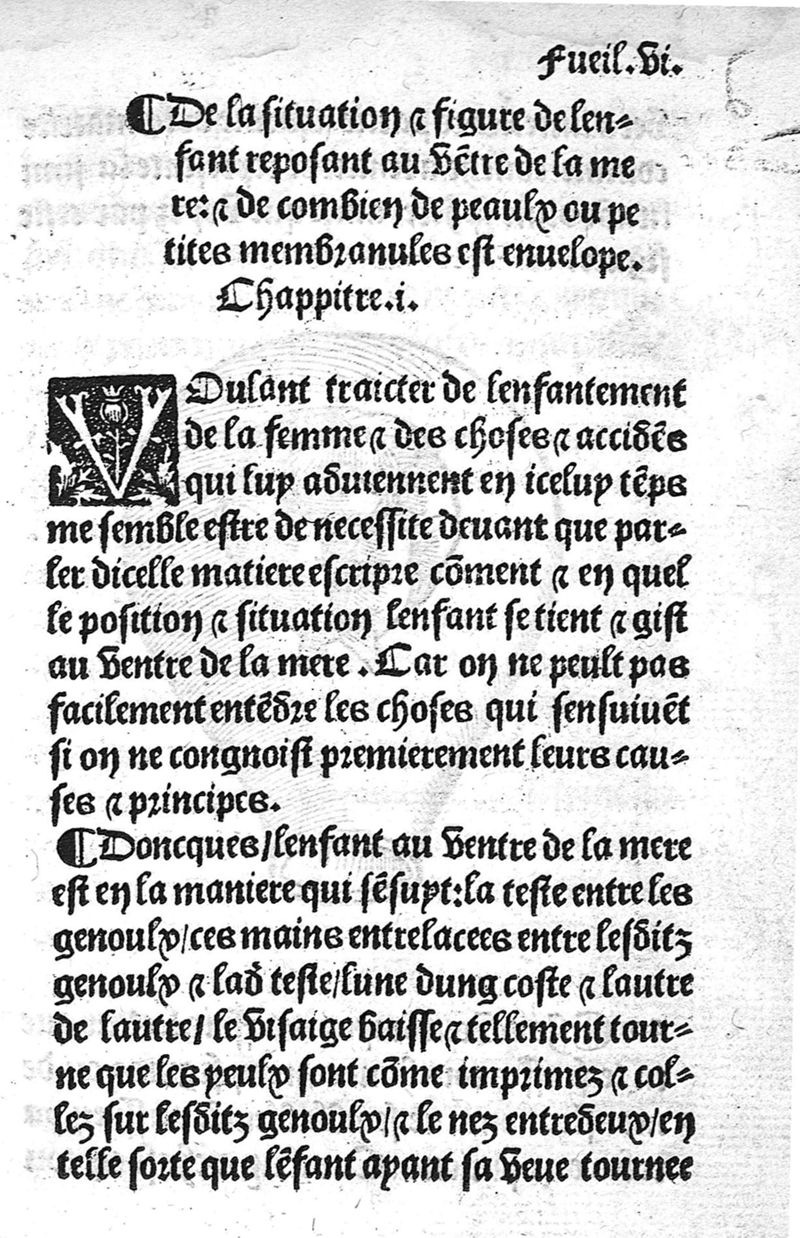 Fueil.Vi.
¶De la situation ⁊ figure de len⸗
fant reposant au vẽtre de la me
re:⁊ de combien de peaulx ou pe
tites membranules est enuelope.
Chappitre.i.
VOulant traicter de lenfantement
de la femme ⁊ des choses ⁊ accidẽs
qui luy aduiennent en iceluy tẽps
me semble estre de necessite deuant que par⸗
ler dicelle matiere escripre cõment ⁊ en quel
le position ⁊ situation lenfant se tient ⁊ gist
au ventre de la mere . Car on ne peult pas
facilement entẽdre les choses qui sensuiuẽt
si on ne congnoist premierement leurs cau⸗
ses ⁊ principes.
¶Doncques/lenfant au ventre de la mere
est en la maniere qui sẽsuyt:la teste entre les
genoulx/ces mains entrelacees entre lesditz
genoulx ⁊ lad teste/lune dung coste ⁊ lautre
de lautre/ le visaige baisse ⁊ tellement tour⸗
ne que les yeulx sont cõme imprimez ⁊ col⸗
lez sur lesditz genoulx/⁊ le nez entredeux/en
telle sorte que lẽfant ayant sa veue tournee